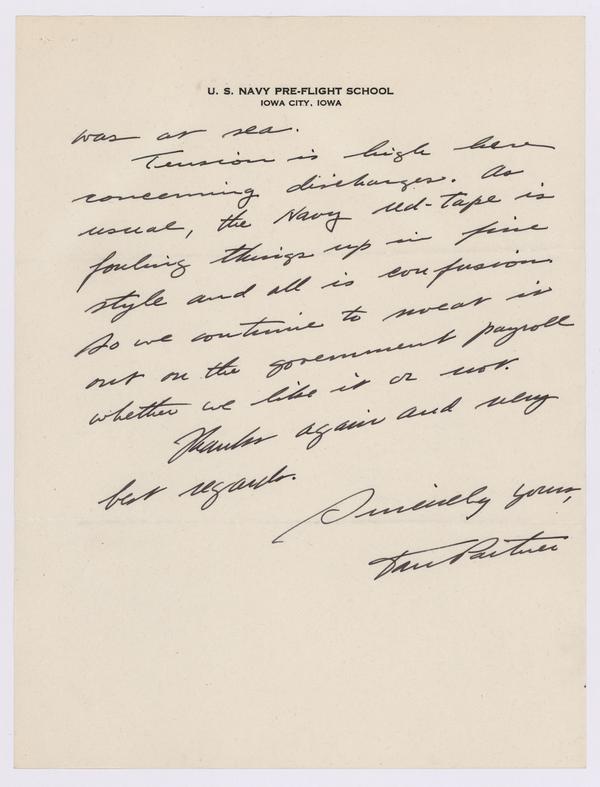 U. S. NAVY PRE-FLIGHT SCHOOL
IOWA CITY, IOWA
was at sea.
Tension is high here
concerning discharges. As
usual, the Navy red-tape is
fouling things up in fine
style and all is confusion.
So we continue to sweat it
out on the government payroll
whether we like it or not.
Thanks again and very
best regards.
Sincerely yours,
Dan Partner